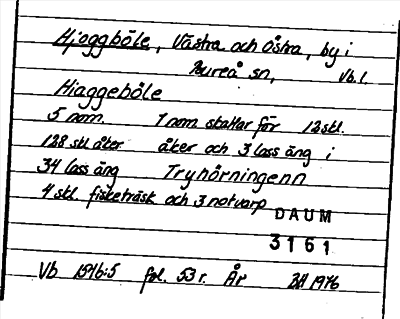 Hjoggböle, Västra och Östra, by i
Bureå sn, Vb.l.
Hiaggeböle
5 nom. 1 nom skattar för 12 skl.
128 skl åker åker och 3 lass äng i
34 lass äng Tryhörningenn
4 skl. fisketräsk och 3 notvarp
DAUM
3161
Vb 1546:5 fol. 53 r. År BH 1976